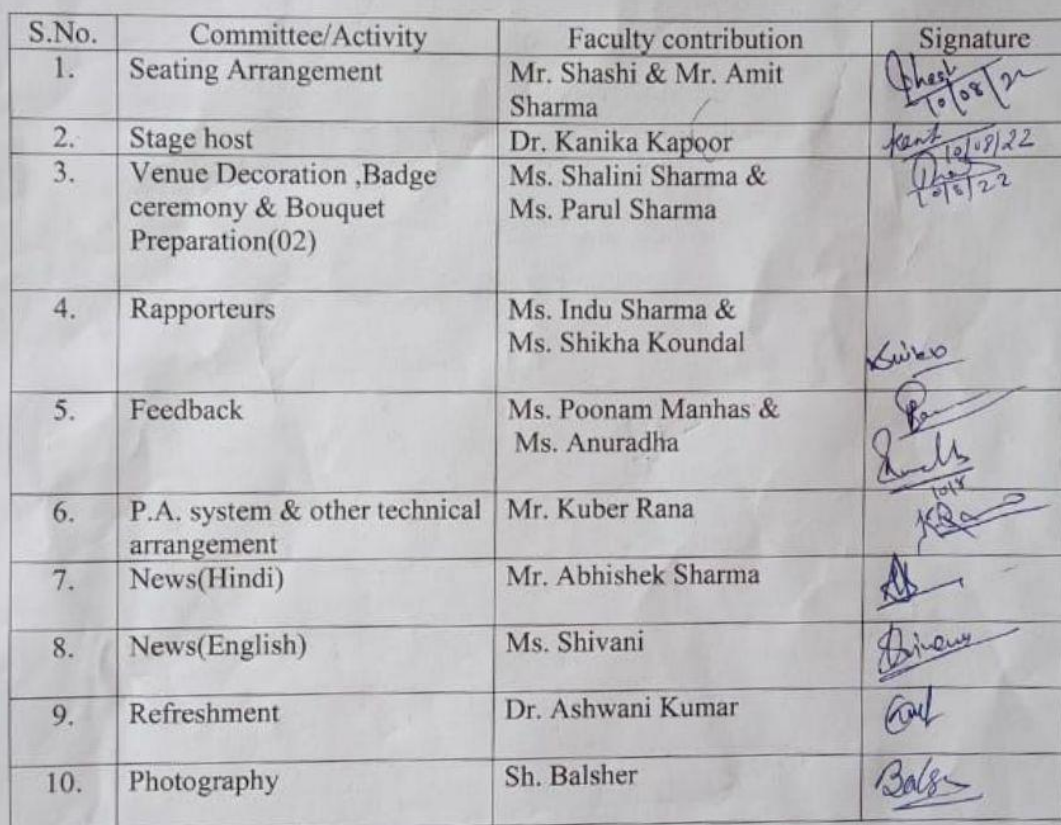 S.No. Committee/Activity Faculty contribution Signature
1. Seating Arrangement Mr. Shashi & Mr. Amit
Sharma
10/08/22
2. Stage host Dr. Kanika Kapoor
10/08/22
3. Venue Decoration ,Badge Ms. Shalini Sharma &
10/8/22
ceremony & Bouquet Ms. Parul Sharma
Preparation(02)
4. Rapporteurs Ms. Indu Sharma &
Ms. Shikha Koundal
5. Feedback Ms. Poonam Manhas &
Ms. Anuradha
10/8
6. P.A. system & other technical Mr. Kuber Rana
arrangement
7. News(Hindi) Mr. Abhishek Sharma
8. News(English) Ms. Shivani
9. Refreshment Dr. Ashwani Kumar
10. Photography Sh. Balsher